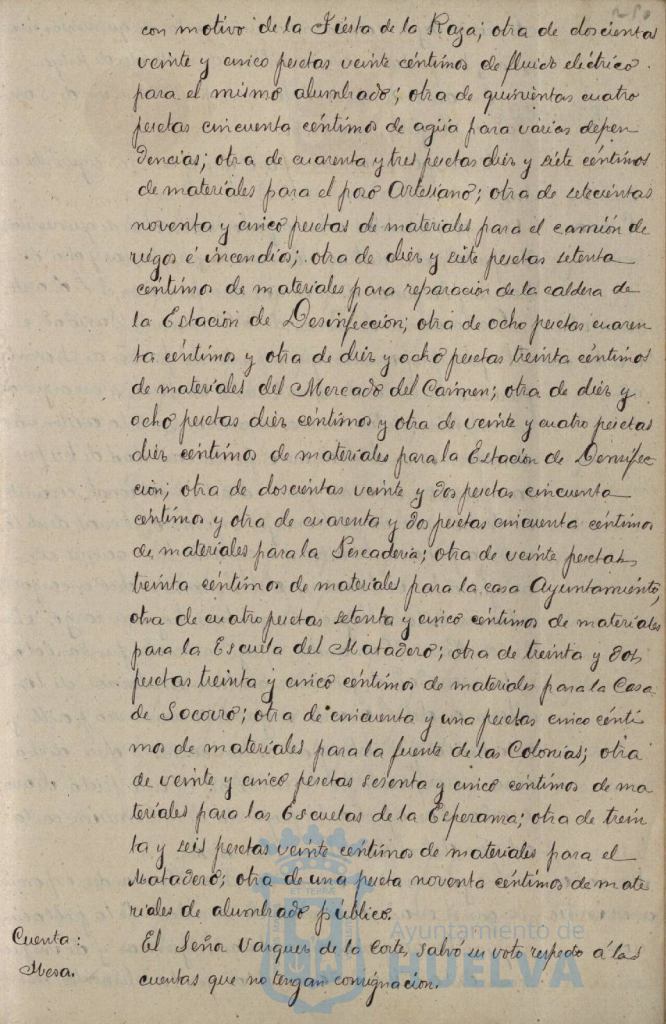 con motivo de la Fiesta de la Raza; otra de doscientas
veinte y cinco pesetas veinte céntimos de fluido eléctrico
para el mismo alumbrado; otra de quinientas cuatro
pesetas cincuenta céntimos de agua para varias depen
dencias; otra de cuarenta y tres pesetas diez y siete céntimos
de materiales para el pozo Artesiano; otra de setecientas
noventa y cinco pesetas de materiales para el camión de
riegos é incendios; otra de diez y siete pesetas setenta
céntimos de materiales para reparación de la caldera de
la Estación de Desinfección; otra de ocho pesetas cuaren
ta céntimos y otra de diez y ocho pesetas treinta céntimos
de materiales del Mercado del Carmen; otra de diez y
ocho pesetas diez céntimos y otra de veinte y cuatro pesetas
diez céntimos de materiales para la Estación de Densifec
ción; otra de doscientas veinte y dos pesetas cincuenta
céntimos y otra de cuarenta y dos pesetas cincuenta céntimos
de materiales para la Pescadería; otra de veinte pesetas
treinta céntimos de materiales para la casa Ayuntamiento,
otra de cuatro pesetas setenta y cinco céntimos de materiales
para la Escuela del Matadero; otra de treinta y dos
pesetas treinta y cinco céntimos de materiales para la Casa
de Socorro; otra de cincuenta y una pesetas cinco cénti
mos de materiales para la fuente de las Colonias; otra
de veinte y cinco pesetas sesenta y cinco céntimos de ma
teriales para las Escuelas de la Esperanza; otra de trein
ta y seis pesetas veinte céntimos de materiales para el
Matadero; otra de una peseta noventa céntimos de mate
riales de alumbrado público.
Cuenta: El Señor Vazquez de la Corte, salvó su voto respecto á las
Mesa. cuentas que no tengan consignación.
Ayuntamiento de
HUELVA